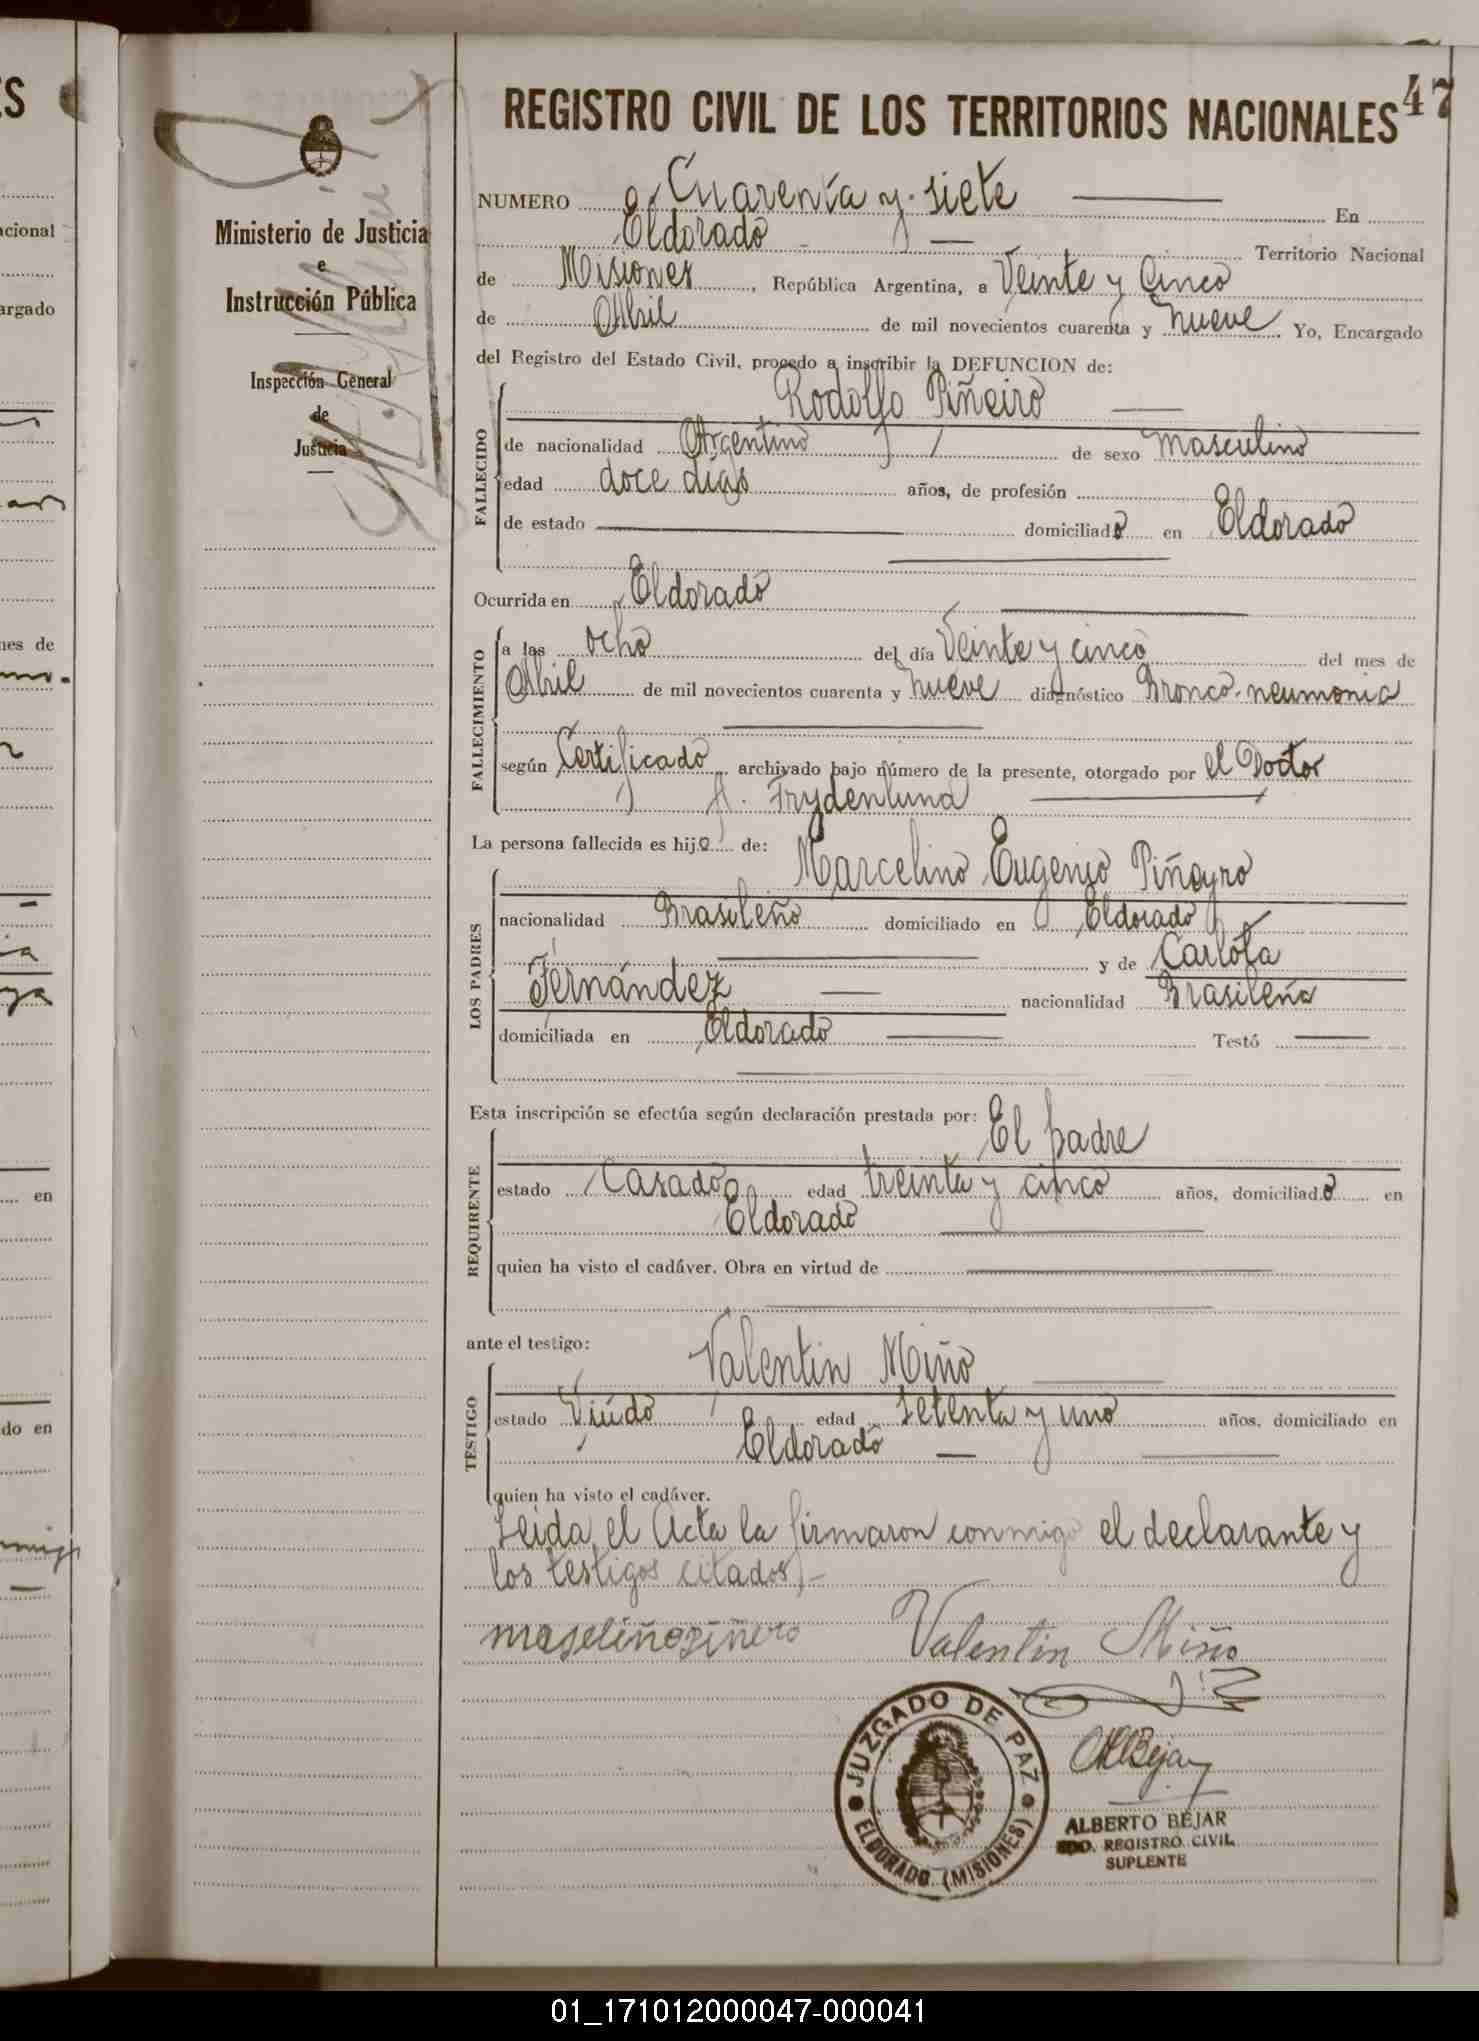 REGISTRO CIVIL DE LOS TERRITORIOS NACIONALES 47
Ministerio de Justicia
e
Instrucción Pública
Inspección General
de
Justicia
NUMERO Cuarenta y siete En
Eldorado Territorio Nacional
de Misiones, República Argentina, a Veinte y Cinco
de Abril de mil novecientos cuarenta y nueve Yo, Encargado
del Registro del Estado Civil, procedo a inscribir la DEFUNCION de:
Rodolfo Piñeiro
FALLECIDO
de nacionalidad Argentino de sexo masculino
edad doce días años, de profesión
de estado domiciliado en Eldorado
Ocurrida en Eldorado
FALLECIMIENTO
a las ocho del día Veinte y cinco del mes de
Abril de mil novecientos cuarenta y nueve diagnóstico Bronco-neumonia
según Certificado archivado bajo número de la presente, otorgado por el Doctor
Frydenlund
La persona fallecida es hijo de: Marcelino Eugenio Piñeyro
LOS PADRES
nacionalidad Brasileño domiciliado en Eldorado
y de Carlota
Fernández nacionalidad Brasileña
domiciliada en Eldorado Testó
Esta inscripción se efectúa según declaración prestada por: El padre
REQUIRENTE
estado Casado edad treinta y cinco años, domiciliado en
Eldorado
quien ha visto el cadáver. Obra en virtud de
ante el testigo: Valentin Miño
TESTIGO
estado Viudo edad setenta y uno años, domiciliado en
Eldorado
quien ha visto el cadáver.
Leida el Acta la firmaron conmigo el declarante y
los testigos citados.-
Valentin Miño
JUZGADO DE PAZ
ELDORADO (MISIONES)
ALBERTO BEJAR
EDO. REGISTRO CIVIL
SUPLENTE
01_171012000047-000041